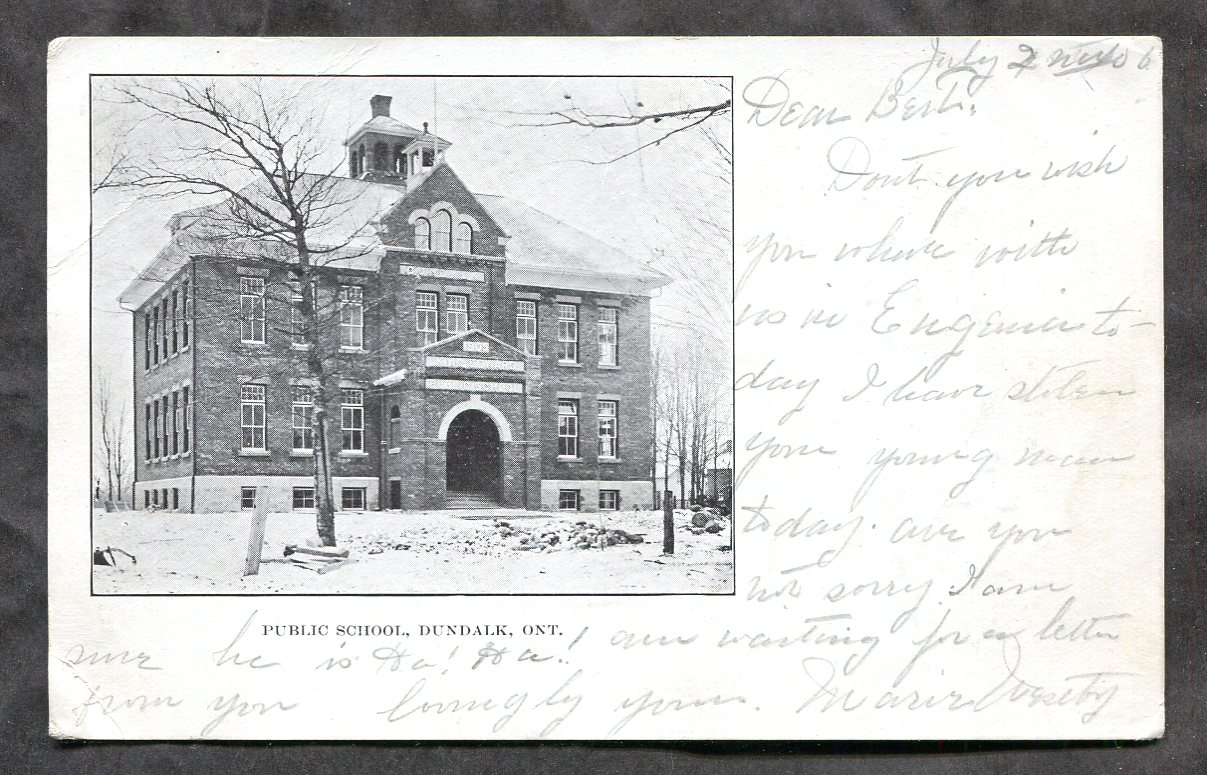 July 2 06
Dear Bert.
Dont you wish
you where with
us in Eugenia to-
day I have stolen
your young man
today. are you
not sorry I am
PUBLIC SCHOOL, DUNDALK, ONT.
sure he is Ha! Ha! am waiting for a letter
from you lovingly yours. Marie